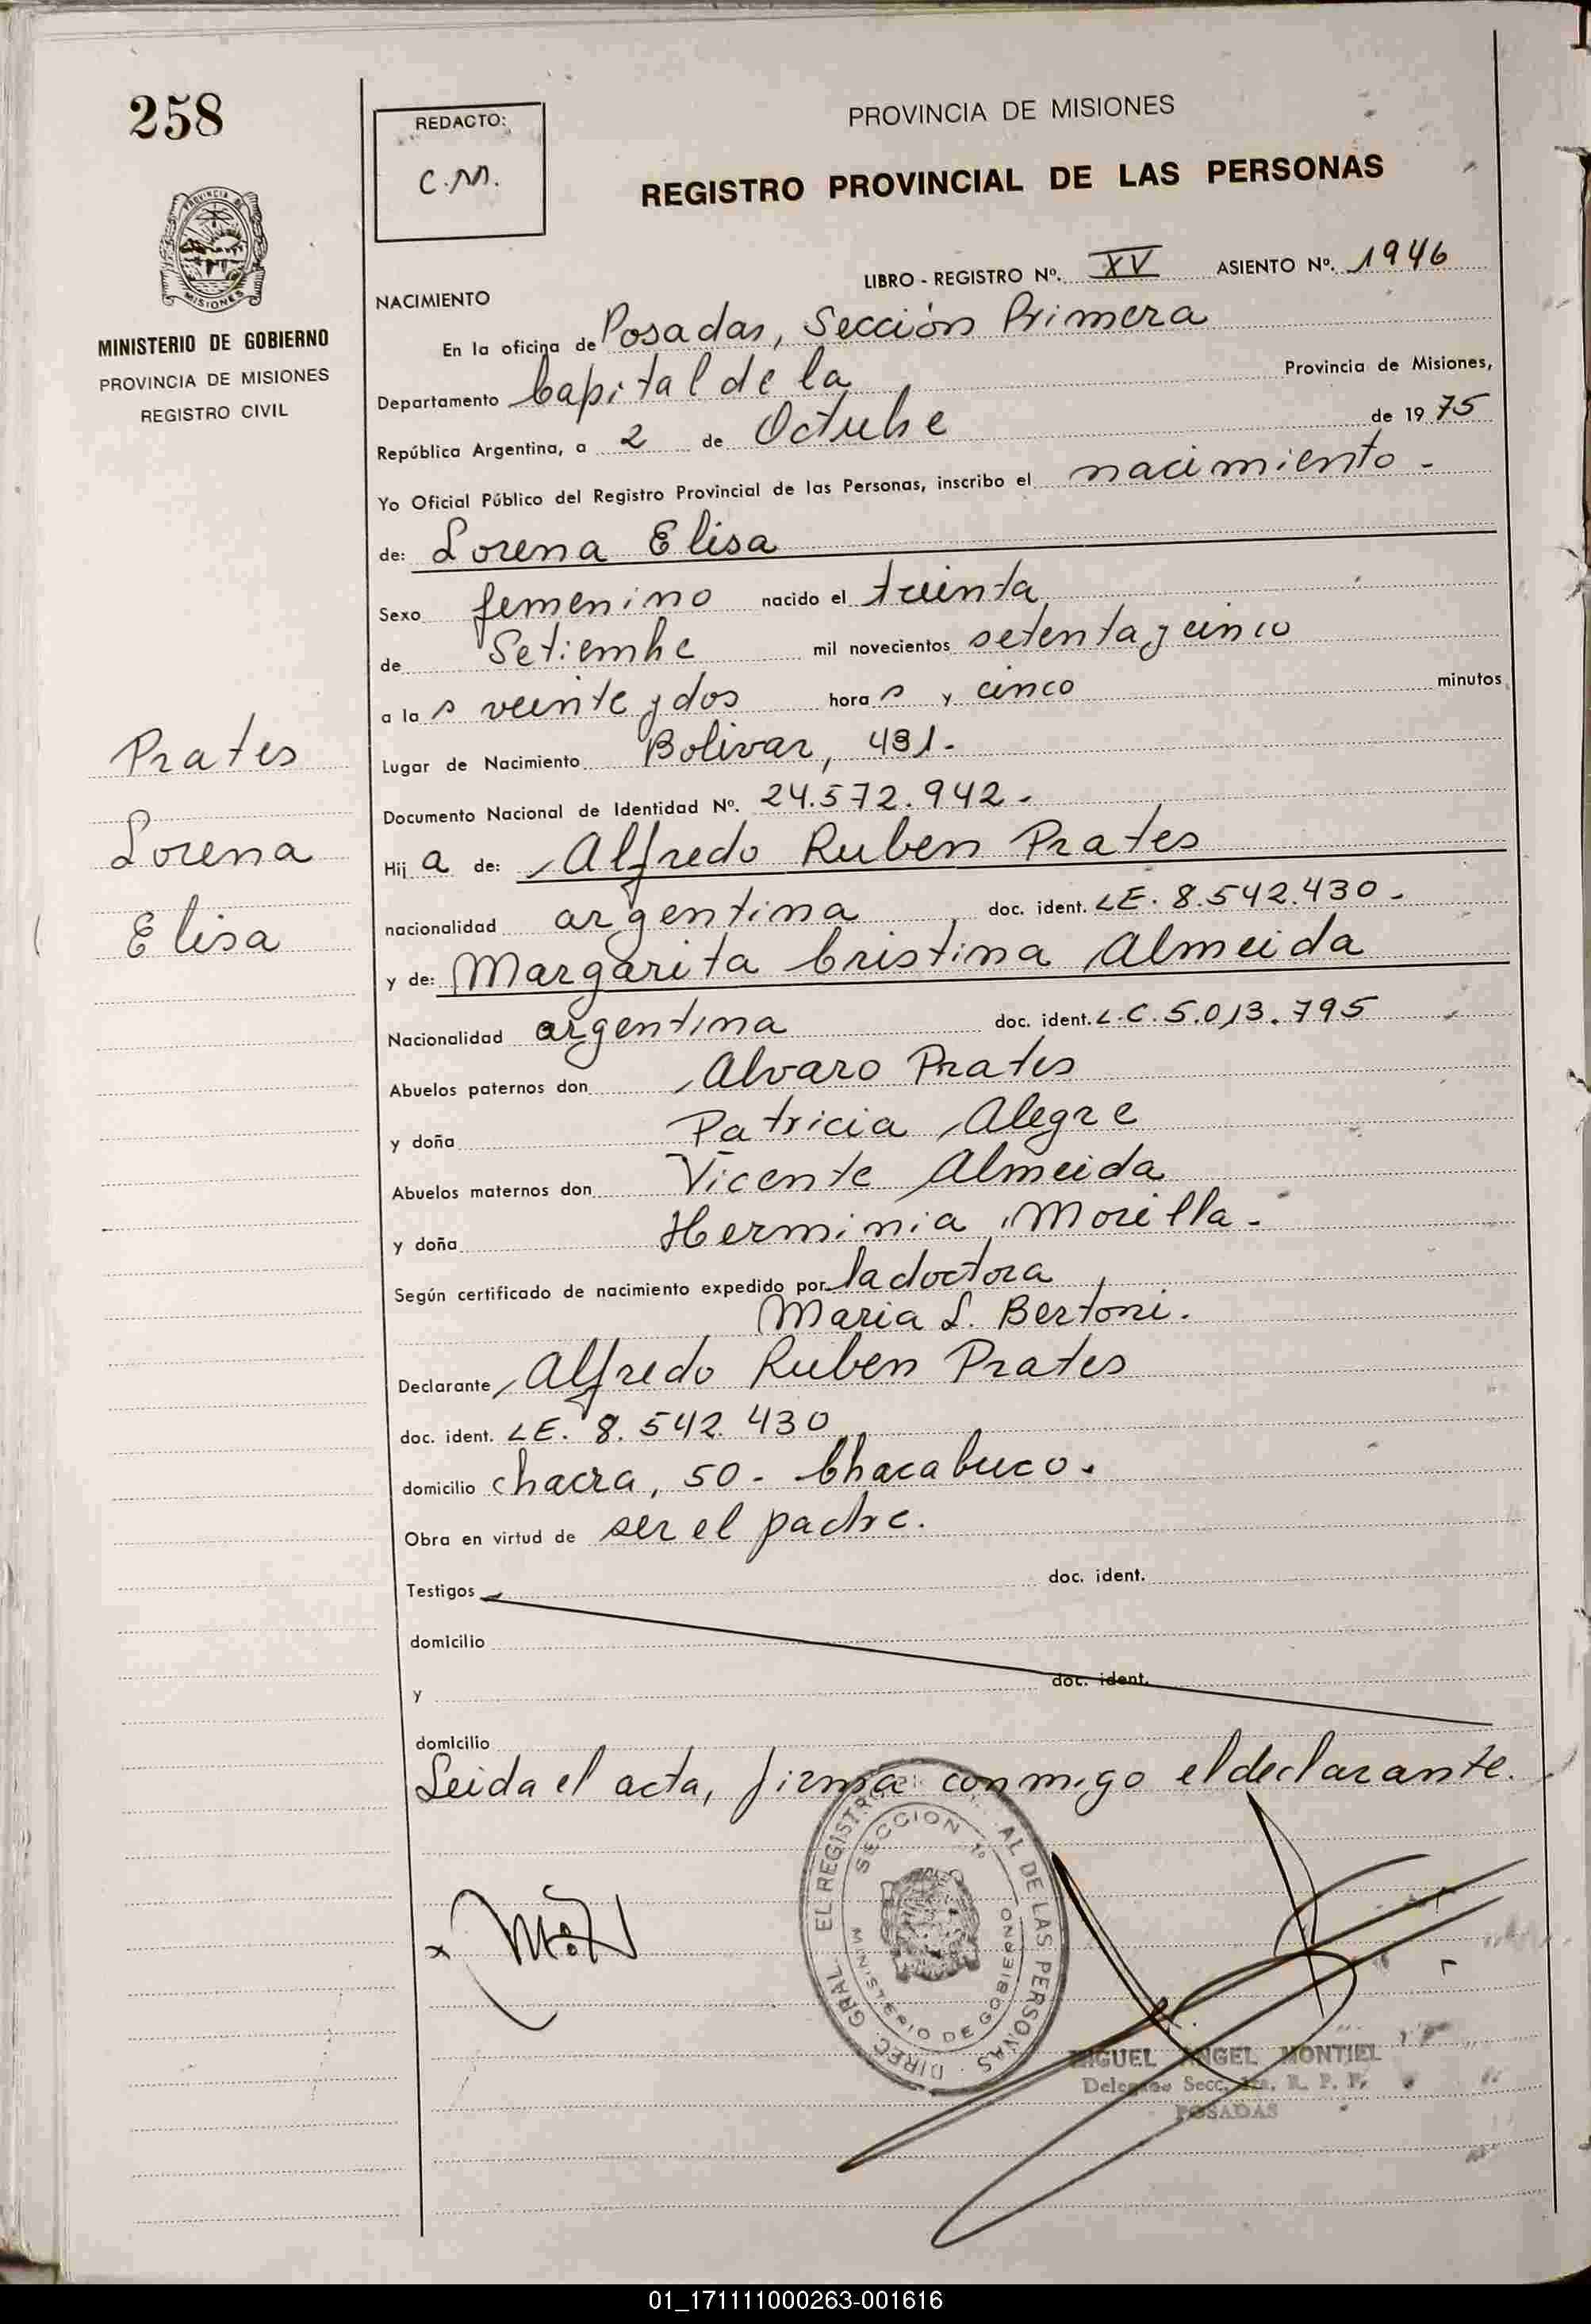 258
REDACTO:
C.M.
PROVINCIA DE MISIONES
REGISTRO PROVINCIAL DE LAS PERSONAS
PROVINCIA DE
MISIONES
MINISTERIO DE GOBIERNO
PROVINCIA DE MISIONES
REGISTRO CIVIL
LIBRO - REGISTRO Nº. XV ASIENTO Nº. 1946
NACIMIENTO
En la oficina de Posadas, Sección Primera
Departamento Capital de la Provincia de Misiones,
República Argentina, a 2 de Octubre de 1975
Yo Oficial Público del Registro Provincial de las Personas, inscribo el nacimiento -
de: Lorena Elisa
Sexo femenino nacido el treinta
de Setiembre mil novecientos setenta y cinco
a las veinte y dos horas y cinco minutos
Lugar de Nacimiento Bolivar, 431.-
Documento Nacional de Identidad Nº. 24.572.942.-
Hija de: Alfredo Ruben Prates
nacionalidad argentina doc. ident. LE. 8.542.430.-
y de: Margarita Cristina Almeida
Nacionalidad argentina doc. ident. L.C. 5.013.795
Abuelos paternos don Alvaro Prates
y doña Patricia Alegre
Abuelos maternos don Vicente Almeida
y doña Herminia Morilla.-
Según certificado de nacimiento expedido por la doctora
Maria L. Bertoni.
Declarante Alfredo Ruben Prates
doc. ident. LE. 8.542.430
domicilio chacra, 50 - Chacabuco.
Obra en virtud de ser el padre.
Testigos doc. ident.
domicilio
y doc. ident.
domicilio
Leida el acta, firma conmigo el declarante.
Prates
Lorena
Elisa
DIREC. GRAL. EL REGISTRO AL DE LAS PERSONAS
SECCION 1º
MINISTERIO DE GOBIERNO
MIGUEL ANGEL MONTIEL
Delegado Secc. 1ra. R. P. P.
POSADAS
01_171111000263-001616